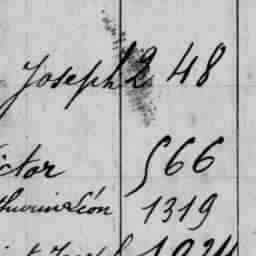 Joseph 2 48
ictor 566
thurin Léon 1319